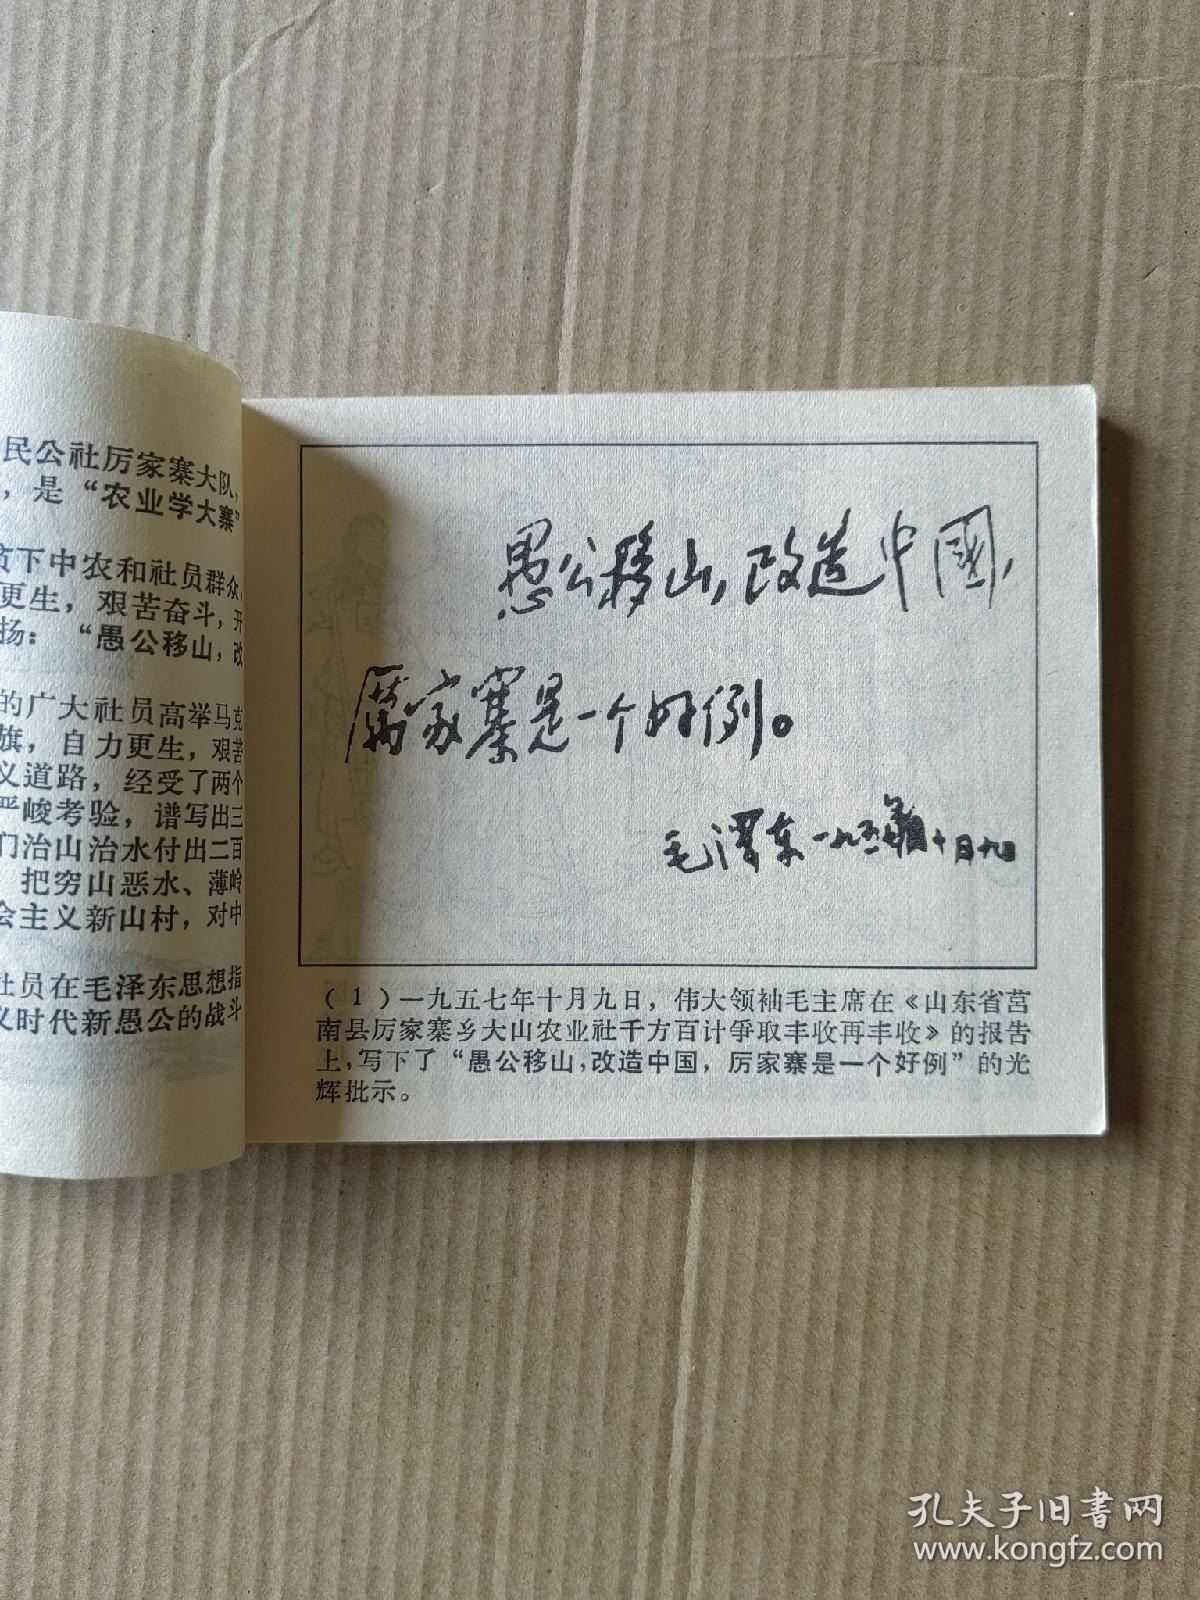 民公社厉家寨大队,
，是“农业学大寨”
贫下中农和社员群众,
更生，艰苦奋斗，开
扬：“愚公移山，改
的广大社员高举马克
旗，自力更生，艰苦
义道路，经受了两个
严峻考验，谱写出三
们治山治水付出二百
把穷山恶水、薄岭
会主义新山村，对中
社员在毛泽东思想指
义时代新愚公的战斗
愚公移山，改造中國，
厲家寨是一个好例。
毛澤东 一九五七年十月九日
（1）一九五七年十月九日，伟大领袖毛主席在《山东省莒
南县厉家寨乡大山农业社千方百计争取丰收再丰收》的报告
上，写下了“愚公移山，改造中国，厉家寨是一个好例”的光
辉批示。
孔夫子旧書网
www.kongfz.com